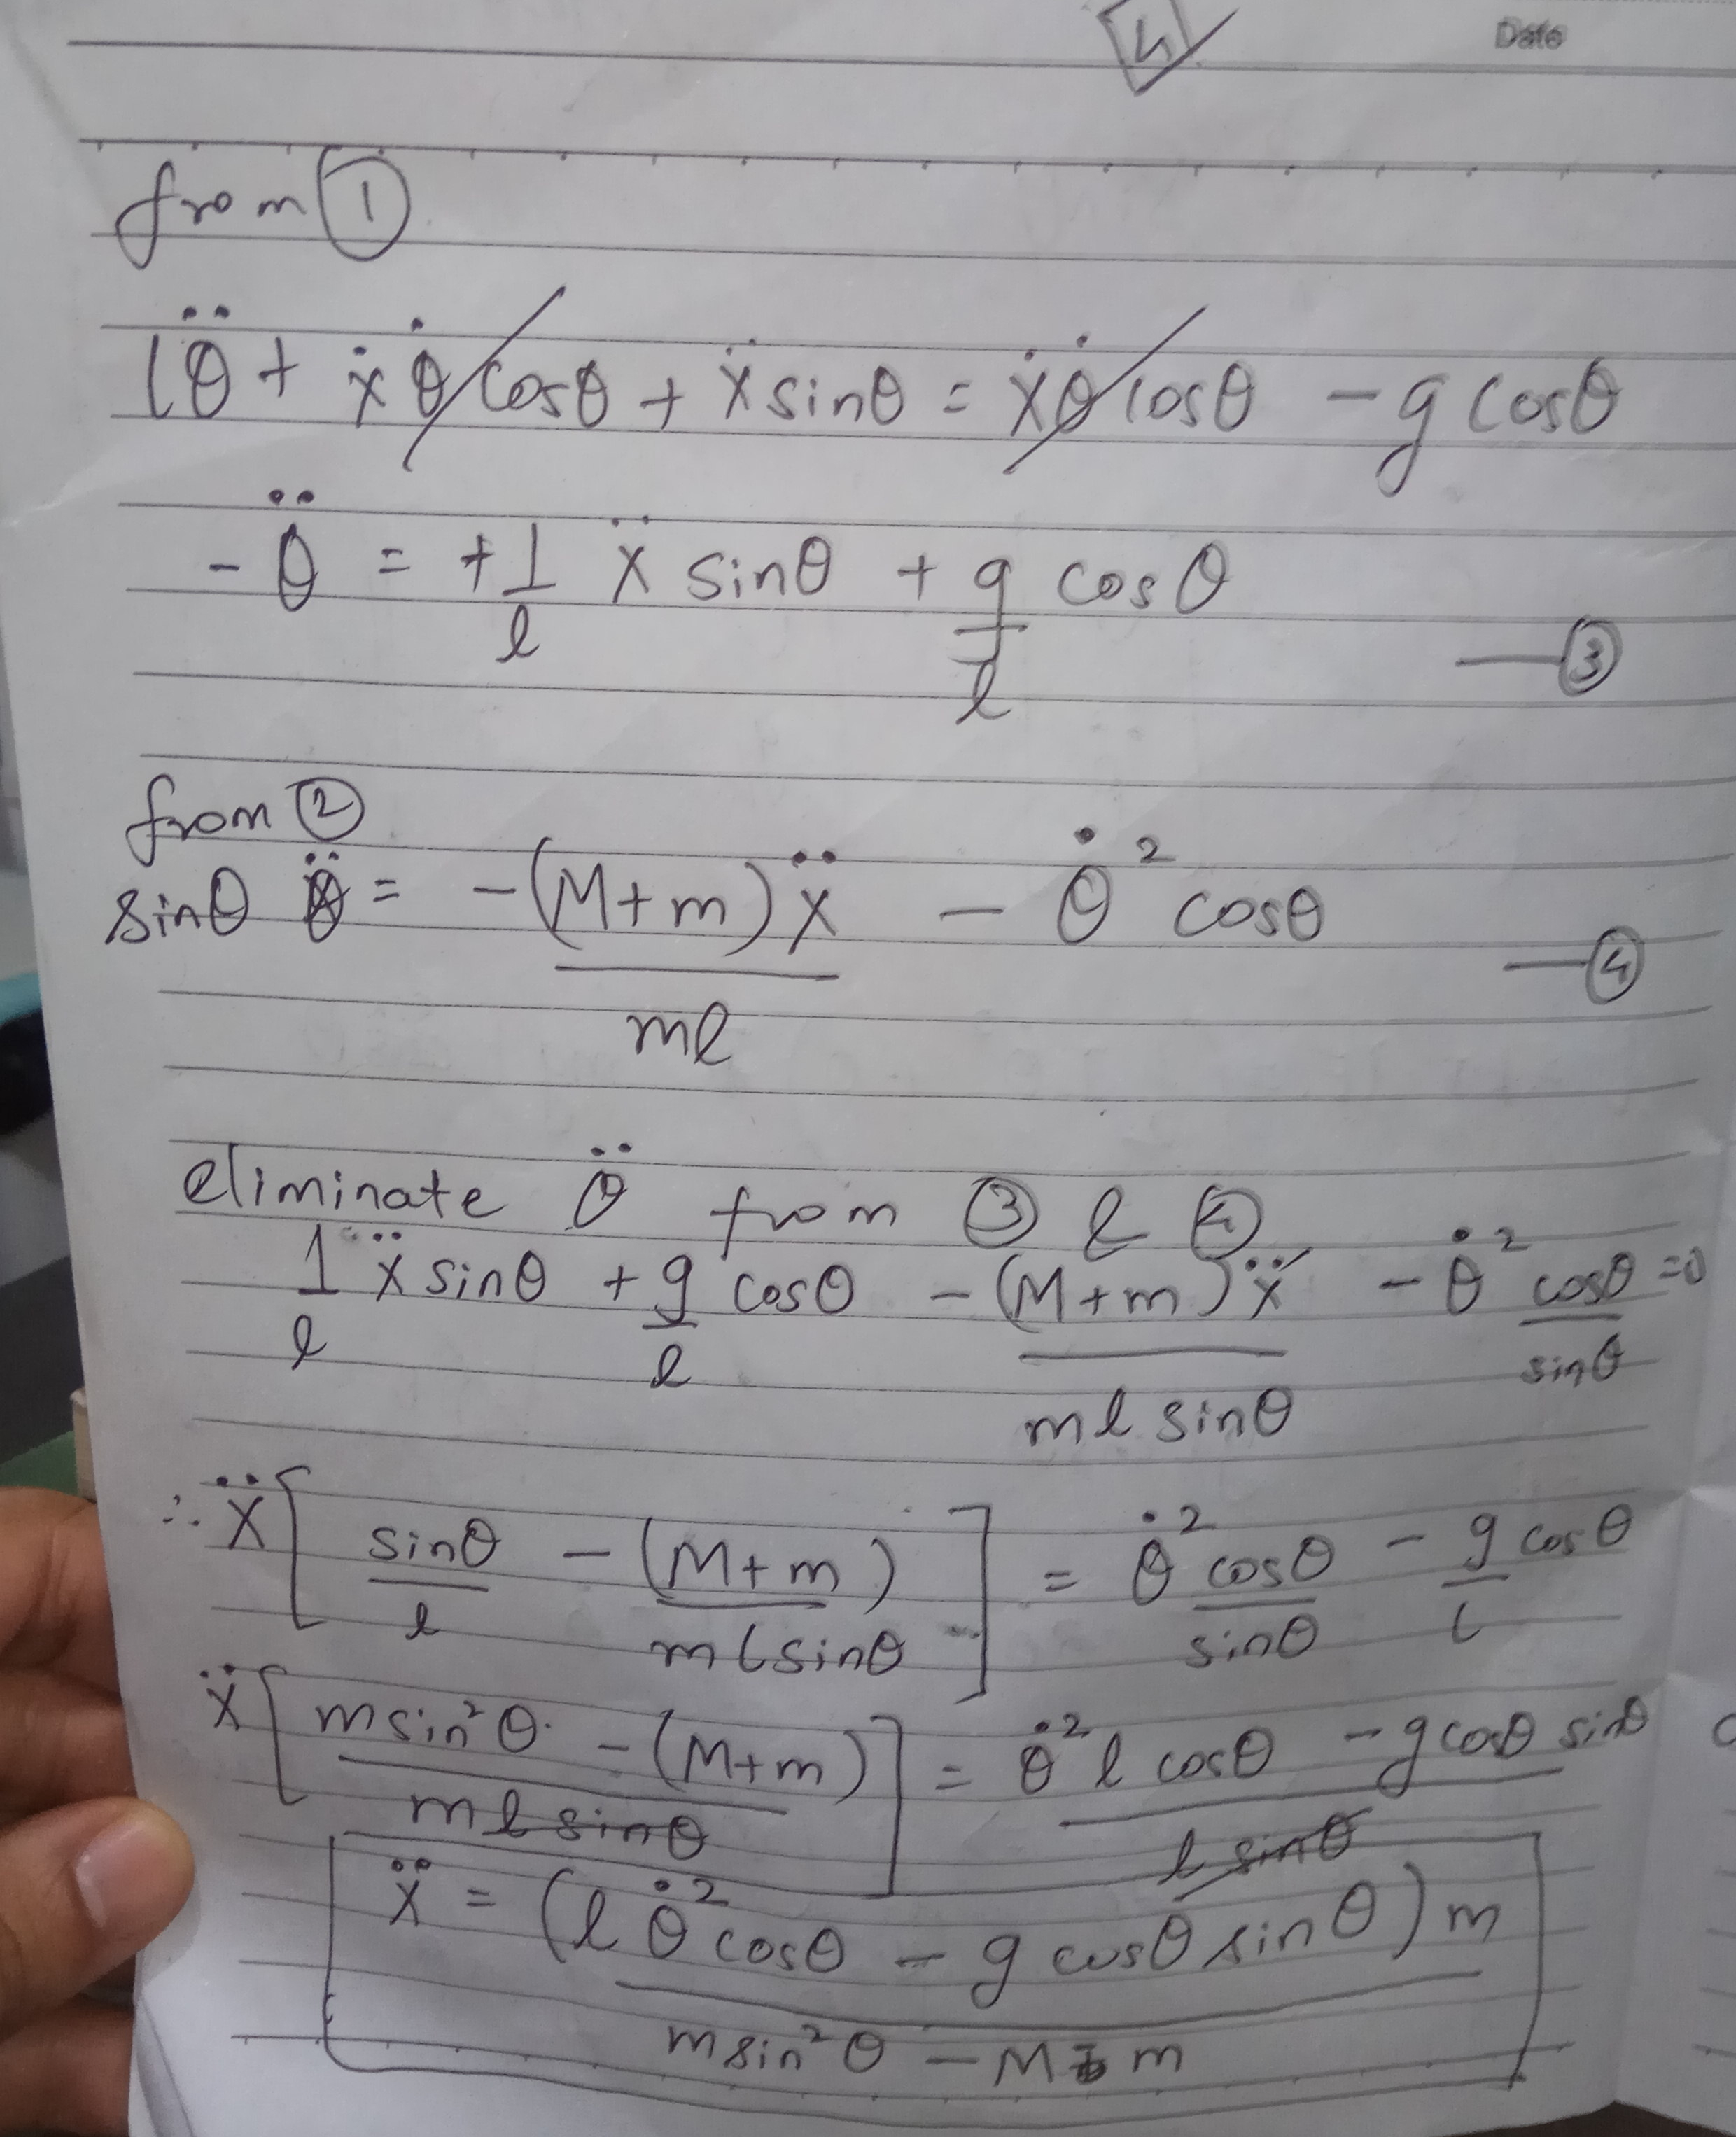 4
Date
from ①
lθ̈ + ẋθ̇cosθ + ẍ sinθ = ẋθ̇cosθ - g cosθ
-θ̈ = +1/l ẍ sinθ + g/l cosθ —③
from ②
sinθ θ̈ = -(M+m)ẍ/ml - θ̇² cosθ —④
eliminate θ̈ from ③ & ④
1/l ẍ sinθ + g/l cosθ - (M+m)ẍ/ml sinθ - θ̇² cosθ/sinθ =0
∴ ẍ[sinθ/l - (M+m)/mlsinθ] = θ̇² cosθ/sinθ - g/l cosθ
ẍ[msin²θ - (M+m)/ml sinθ] = θ̇² l cosθ - g cosθ sinθ/l sinθ
ẍ = (l θ̇² cosθ - g cosθ sinθ) m/msin²θ - M - m